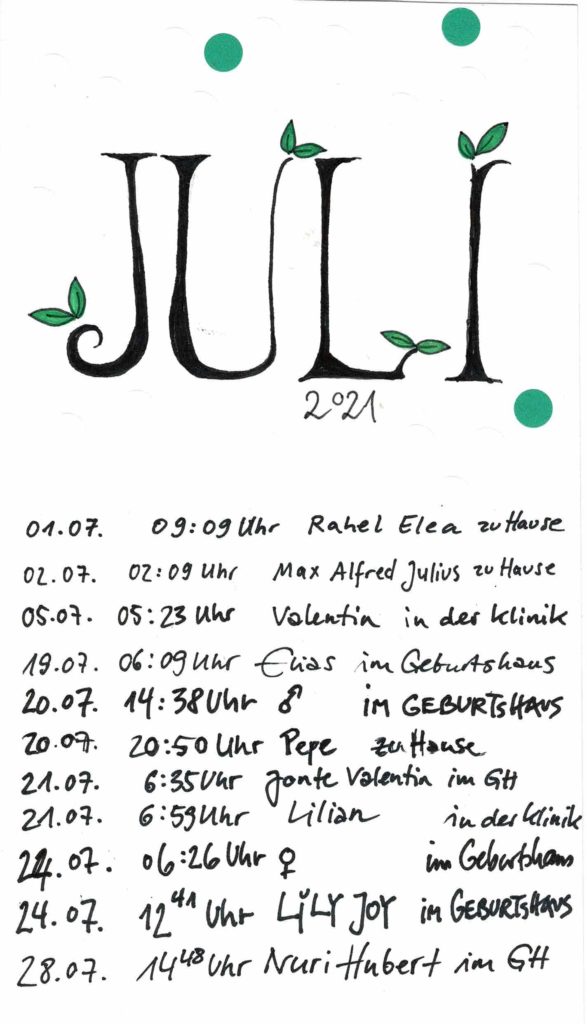 JULI
2021
01.07. 09:09 Uhr Rahel Elea zu Hause
02.07. 02:09 Uhr Max Alfred Julius zu Hause
05.07. 05:23 Uhr Valentin in der Klinik
19.07. 06:09 Uhr Elias im Geburtshaus
20.07. 14:38 Uhr ♂ im GEBURTSHAUS
20.07. 20:50 Uhr Pepe zu Hause
21.07. 6:35 Uhr Jonte Valentin im GH
21.07. 6:59 Uhr Lilian in der Klinik
24.07. 06:26 Uhr ♀ im Geburtshaus
24.07. 12⁴¹ Uhr LILY JOY im GEBURTSHAUS
28.07. 14⁴⁸ Uhr Nuri Hubert im GH